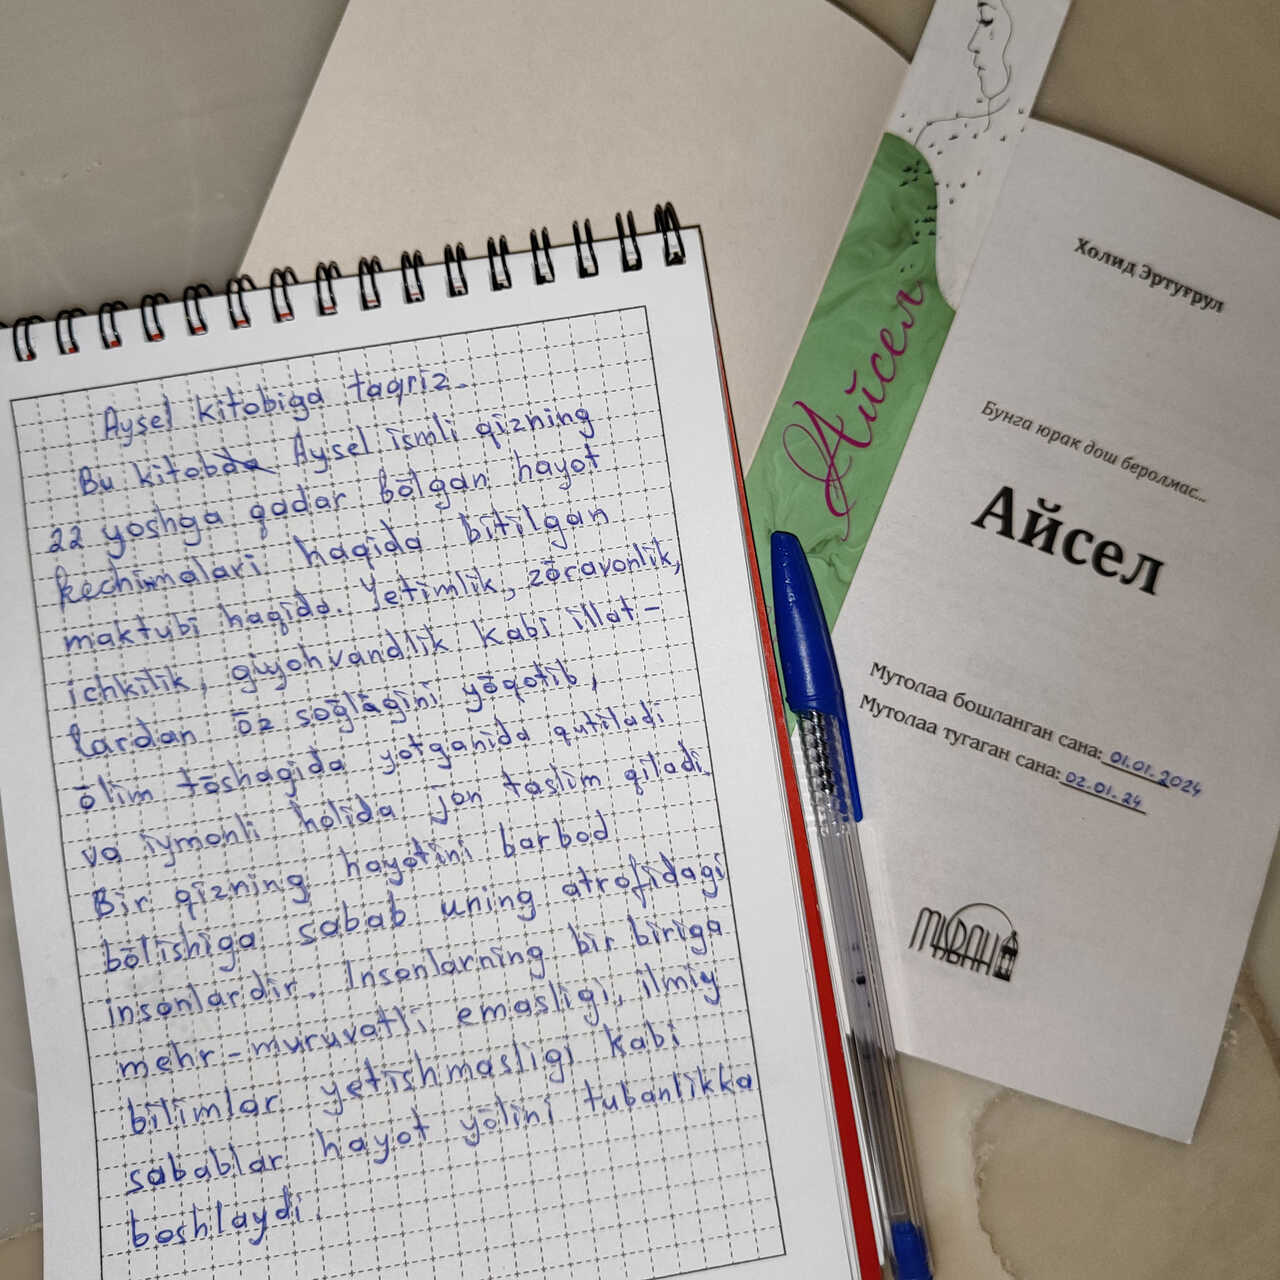 Aysel kitobiga taqriz.
Bu kitobda Aysel ismli qizning
22 yoshga qadar bōlgan hayot
kechinmalari haqida bitilgan
maktubi haqida. Yetimlik, zōravonlik,
ichkilik, giyohvandlik kabi illat-
lardan ōz soḡlāgini yōqotib,
ōlim tōshagida yotganida qutiladi
va iymonli holida jon taslim qiladi.
Bir qizning hayotini barbod
bōlishiga sabab uning atrofidagi
insonlardir. Insonlarning bir biriga
mehr-muruvatli emasligi, ilmiy
bilimlar yetishmasligi kabi
sabablar hayot yōlini tubanlikka
boshlaydi.
Айсел
Холид Эртуғрул
Бунга юрак дош беролмас...
Айсел
Мутолаа бошланган сана: 01.01.2024
Мутолаа тугаган сана: 02.01.24